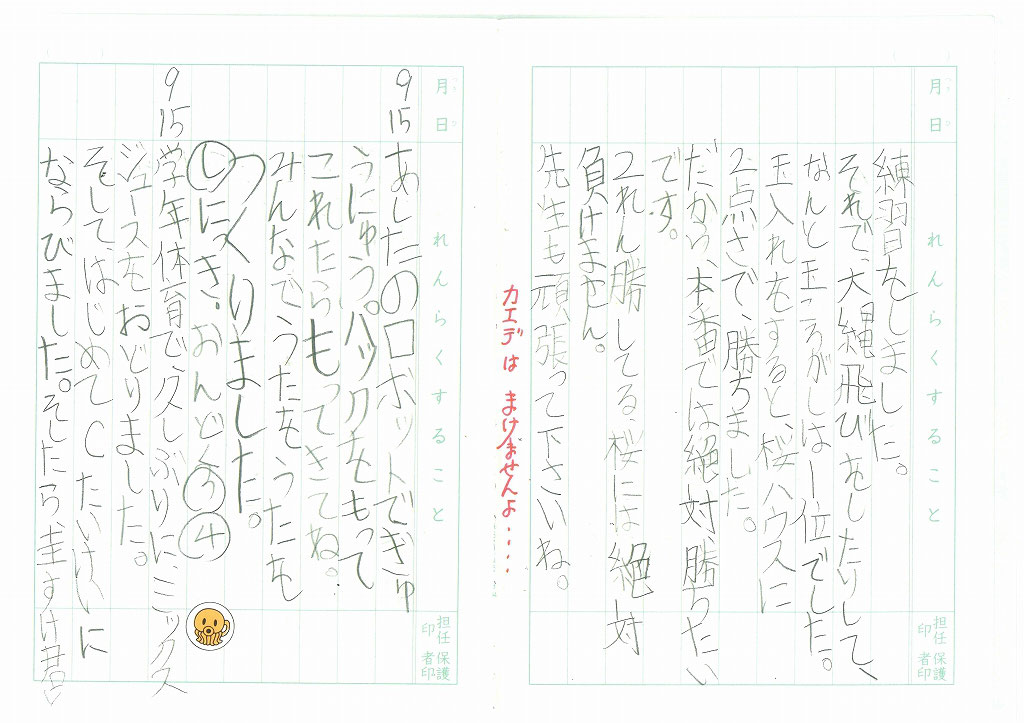 月日
れんらくすること
担任印
保護者印
練習をしました。
それで、大縄飛びをしたりして、
なんと玉ころがしは一位でした。
玉入れをすると、桜ハウスに
2点さで、勝ちました。
だから、本番では絶対、勝ちたい
です。
2れん勝してる桜には絶対
負けません。
先生も頑張って下さいね。
カエデは まけませんよ....
月日
れんらくすること
担任印
保護者印
9 15
あしたのロボットでぎゅ
うにゅう。パックをもって
これたらもってきてね。
みんなでうたをうたを
つくりました。
し にっき。おんどく う 4
9 15
学年体育で、久しぶりに、ミックス
ジュースをおどりました。
そして、はじめてCたいけいに
ならびました。そしたら、圭すけ君